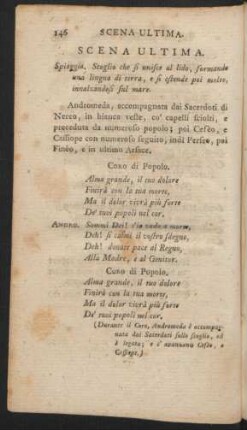 146 SCENA ULTIMA.
SCENA ULTIMA.
Spiaggia. Scoglio che si unisce al lido, formando
una lingua di terra, e si estende poi molto,
innalzandosi sul mare.
Andromeda, accompagnata dai Sacerdoti di
Nereo, in bianca veste, co' capelli sciolti, e
preceduta da numeroso popolo; poi Cefèo, e
Cassiope con numeroso seguito; indi Perseo, poi
Finèo, e in ultimo
CORO di Popolo.
Alma grande, il tuo dolore
Finirà con la tua morte,
Ma il dolor vivrà più forte
De' tuoi popoli nel cor.
ANDRO. Sommi Dei!
Deh! si calmi il vostro sdegno,
Deh! donate pace al Regno,
Alla Madre, e al Genitor.
CORO di Popolo.
Alma grande, il tuo dolore
Finirà con la tua morte,
Ma il dolor vivrà più forte
De' tuoi popoli nel cor.
(Durante il Coro, Andromeda è accompa-
nata dai Sacerdoti sullo scoglio, ed
è legata; e s' avanzano Cefèo, e
Cassiope.)